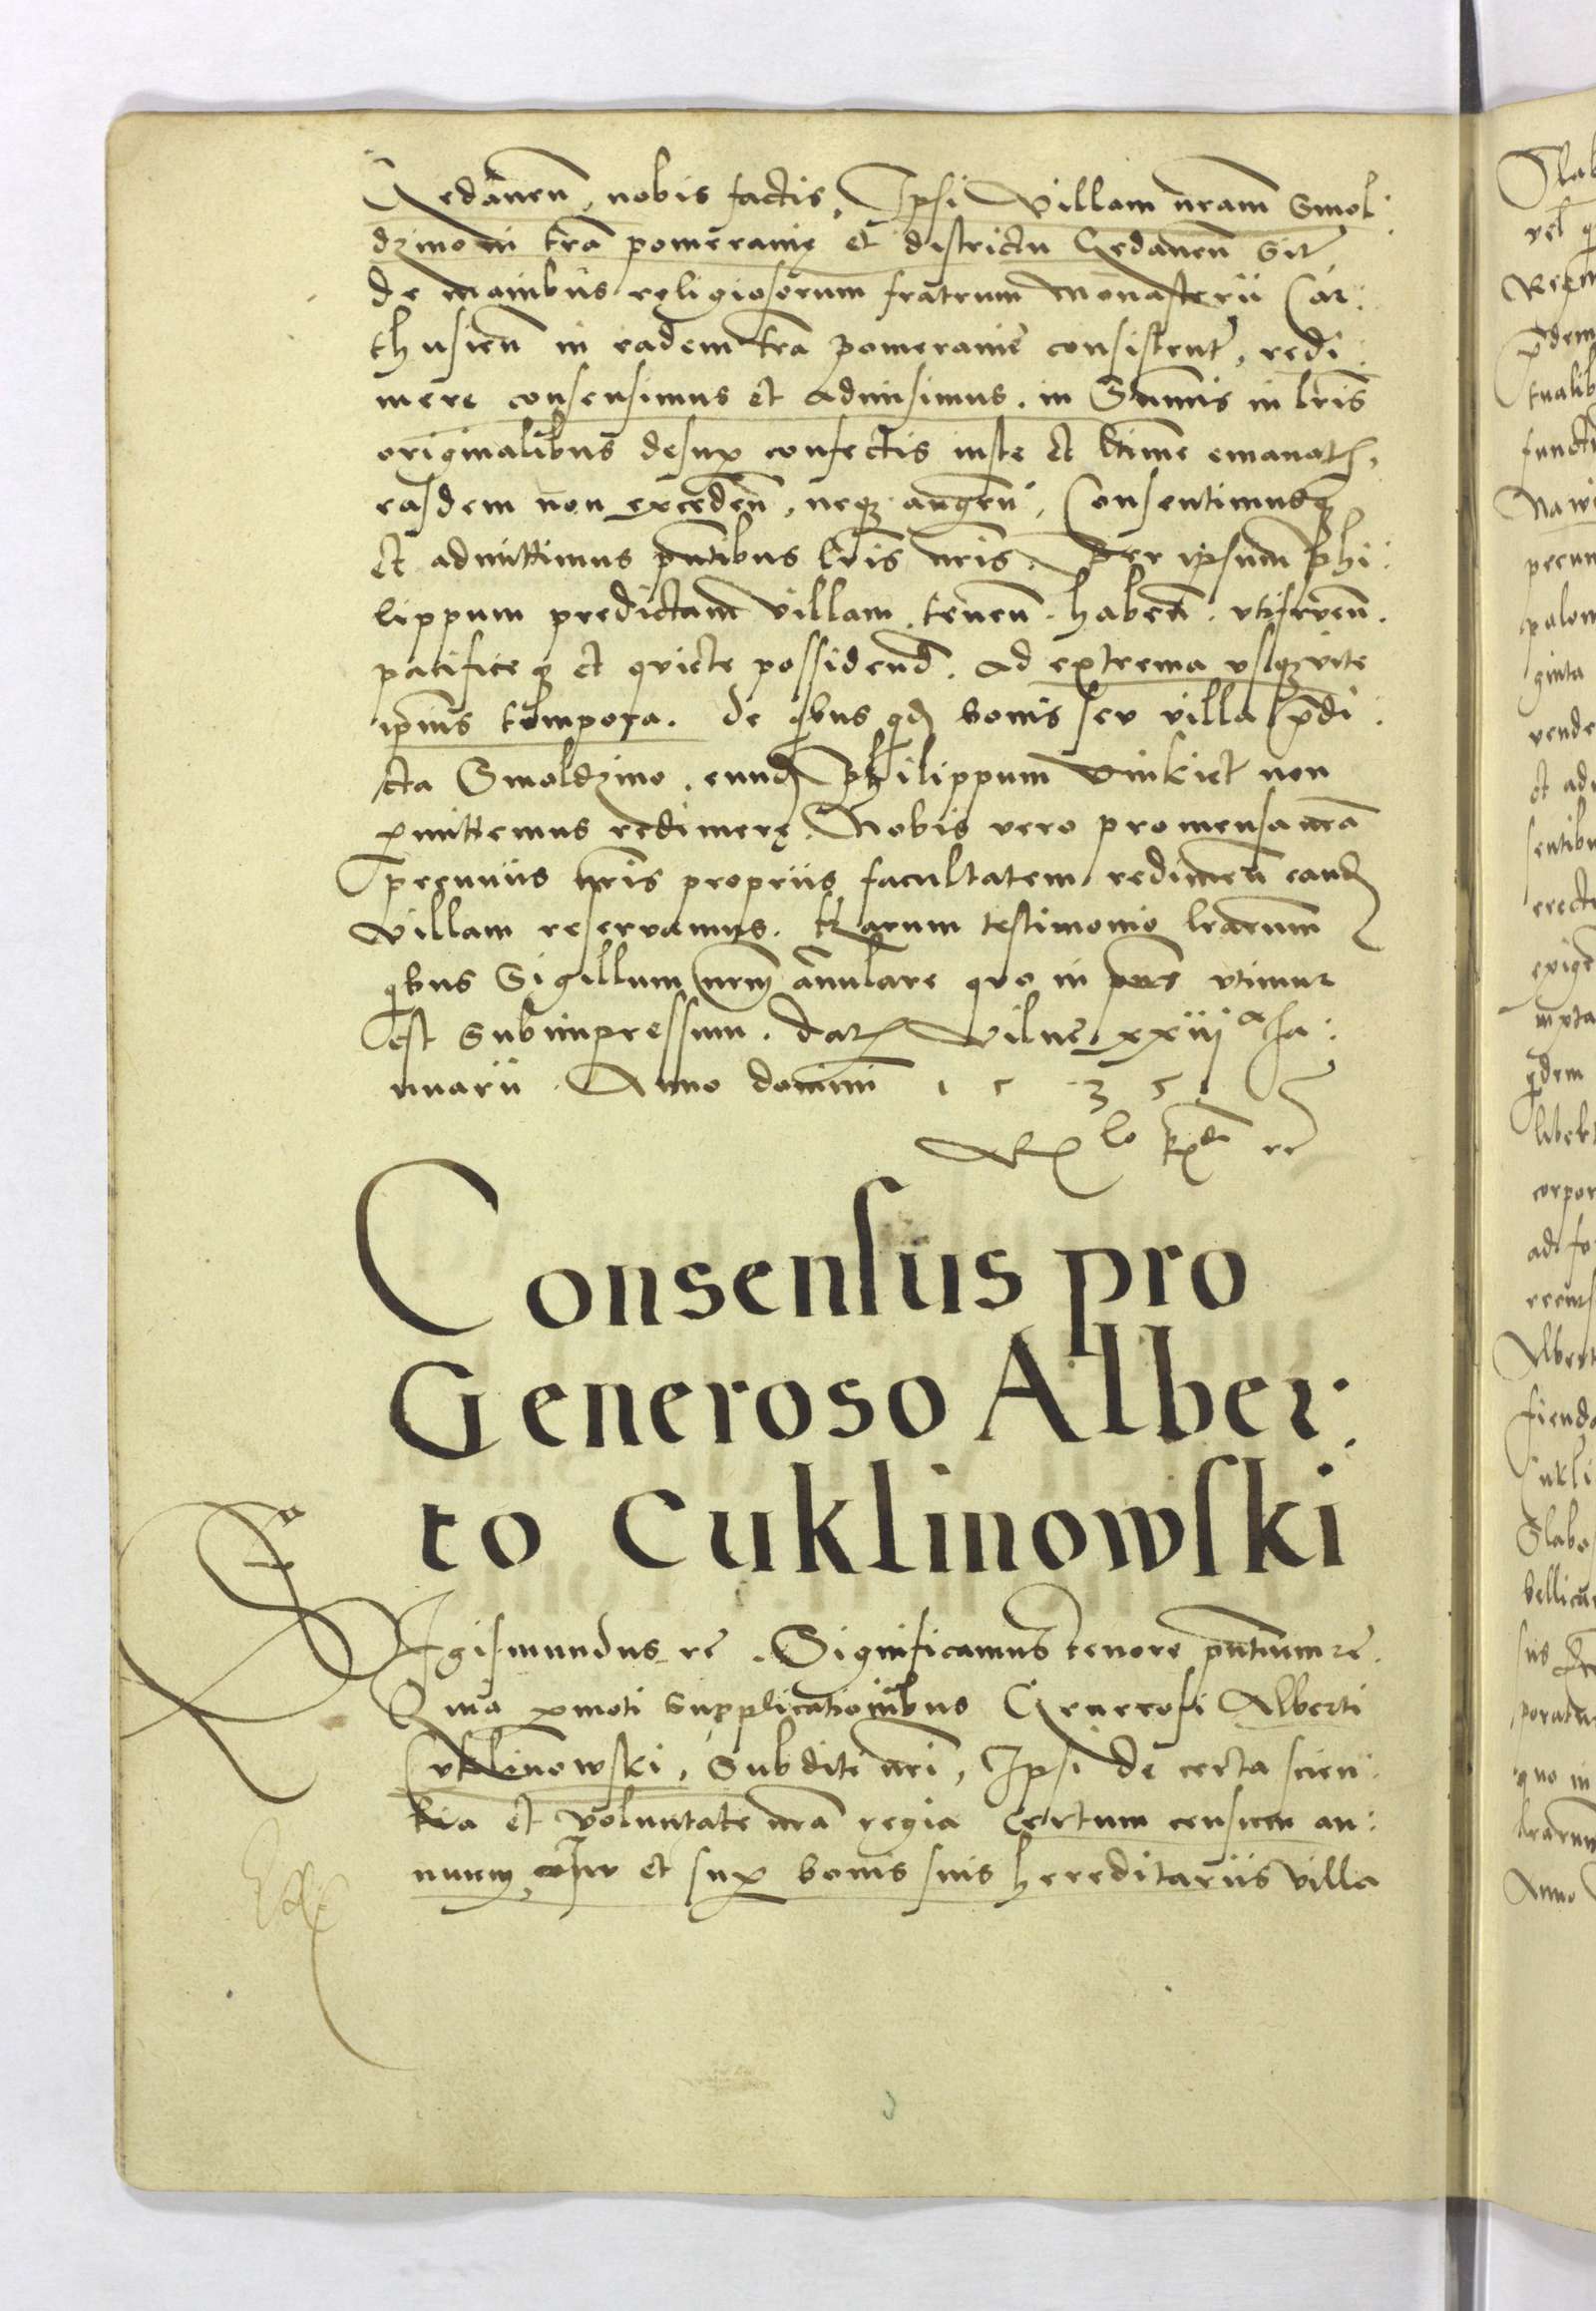 Gedanen, nobis factis, Ipsi Villam nram Smol:
dzino in tra pomeranie et districtu Gedanen Sit
de manibus religiosorum fratrum monasterii Car:
thusien in eadem tra pomeranie consistent, redi:
mere consensimus et admisimus. in Summis in lris
originalibus desup confectis iuste et ltime emanat,
easdem non exceden, neq augen, Consentimusq
et admittimus pntibus lris nris. Per ipsum Phi:
lippum predictam Villam tenen. haben. utifruen.
pacifice q et quiete possidend. Ad extrema usq vite
ipius tempora. de qbus qd bonis seu villa pdi:
cta Smoldzino, eund Philippum Vinkiet non
pmittemus redimere. Nobis vero pro mensa nra
pecuniis nris propriis facultatem redimen eand
villam reservamus. Harum testimonio lrarum
qbus Sigillum nrm annulare quo in pns utimur
est Subimpressum. dat Wilne xxiiij a Ja:
nuarii. Anno domini 1 5 3 5.
Consensus pro
Generoso Alber:
to Cuklinowski
Sigismundus re. Significamus tenore pntium re.
Quia pmoti Supplicationibus Generosi Alberti
Cuklinowski, Subditi nri, Ipsi de certa scien:
tia et voluntate nra regia certum censum an:
nuum in et sup bonis suis hereditariis villa